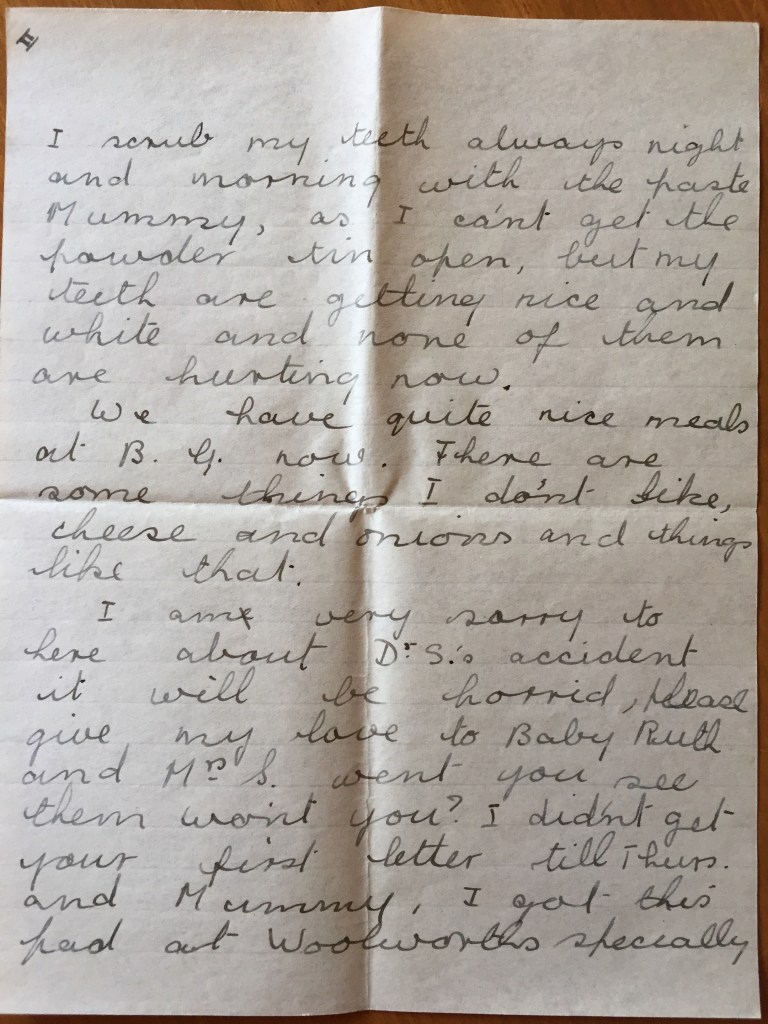 II
I scrub my teeth always night
and morning with the paste
Mummy, as I ca'nt get the
powder tin open, but my
teeth are getting nice and
white and none of them
are hurting now.
We have quite nice meals
at B. G. now. There are
some things I do'nt like,
cheese and onions and things
like that.
I am very sorry to
here about Dr S.'s accident
it will be horrid, Please
give my love to Baby Ruth
and Mrs S. went you see
them wo'nt you? I did'nt get
your first letter till Thurs.
and Mummy, I got this
pad at Woolworths specially